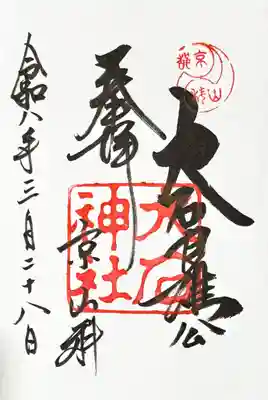 奉拝
大石内蔵助公
大石
神社
京山科
令和八年三月二十八日